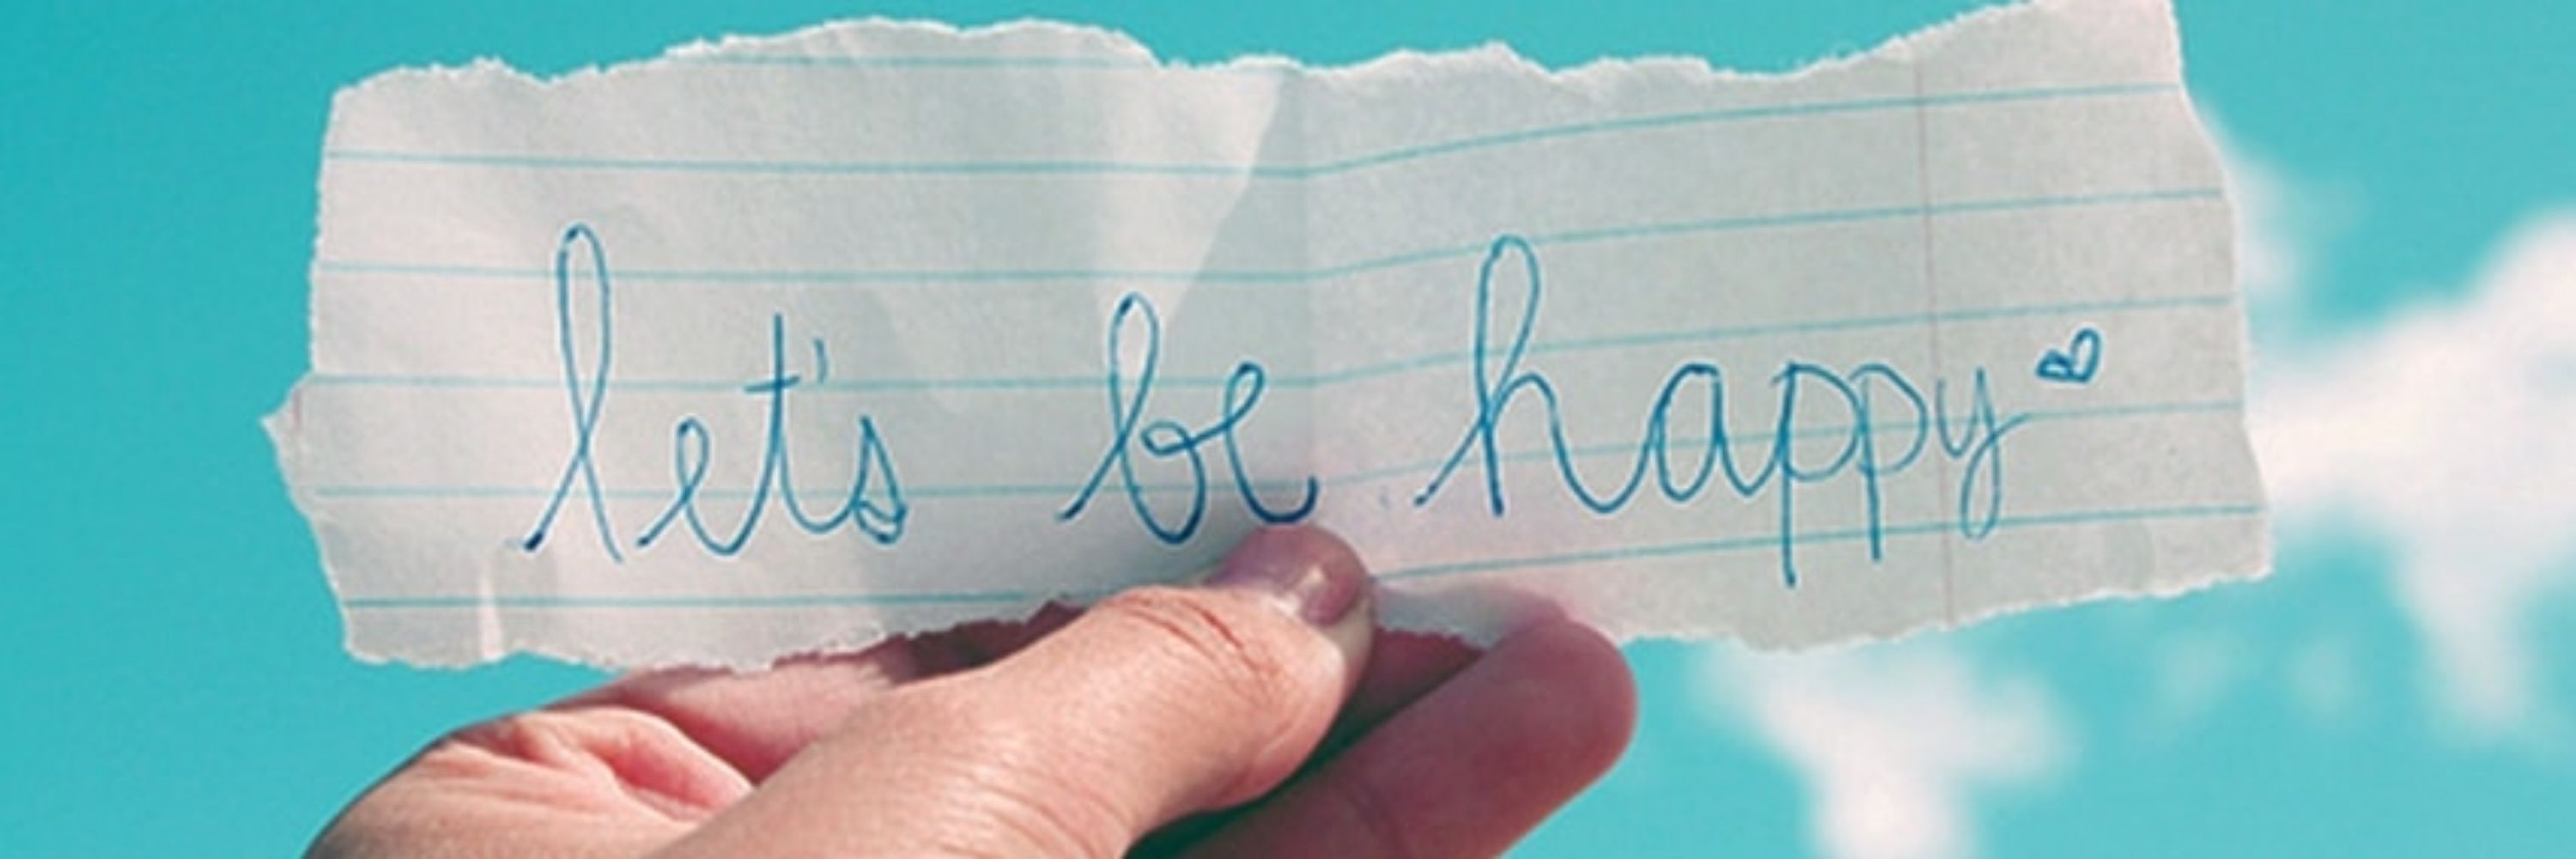 let's be happy